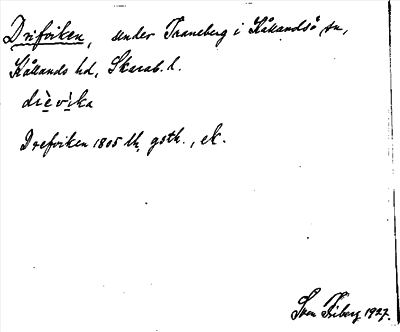 Drifviken, under Traneberg i Kållandsö sn,
Kållands hd, Skarab. l.
dièvika
Drefviken 1805 lh, gsth., ek.
Sven Friberg 1927.